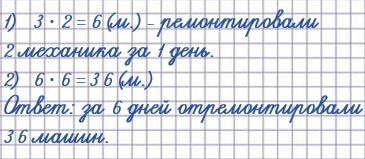 1) 3 · 2 = 6 (м.) – ремонтировали
2 механика за 1 день.
2) 6 · 6 = 36 (м.)
Ответ: за 6 дней отремонтировали
36 машин.